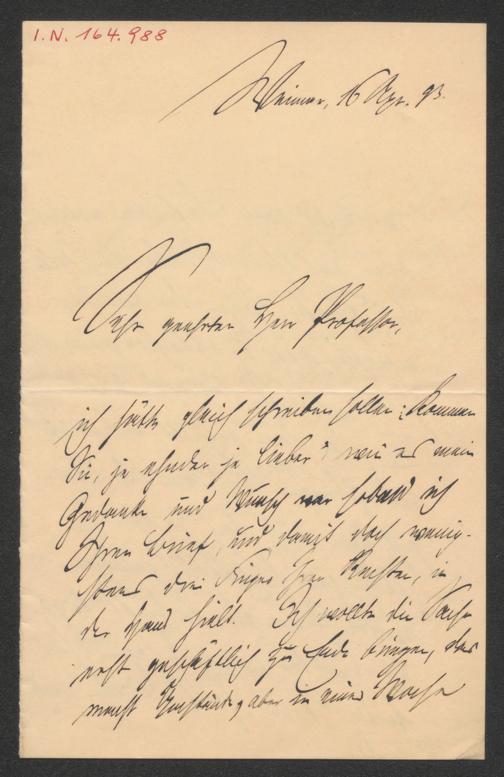 I.N. 164.988
Weimar, 16 Apr. 93.
Sehr geehrter Herr Professor,
ich hätte gleich schreiben sollen: „Kommen
Sie, je ehnder je lieber“ wie es mein
Gedanke und Wunsch war sobald ich
Ihren Brief, und damit doch wenig-
stens drei Finger Ihrer Rechten, in
der Hand hielt. Ich wollte die Sache
erst geschäftlich zu Ende bringen, das
macht Umstände, aber in einer Woche